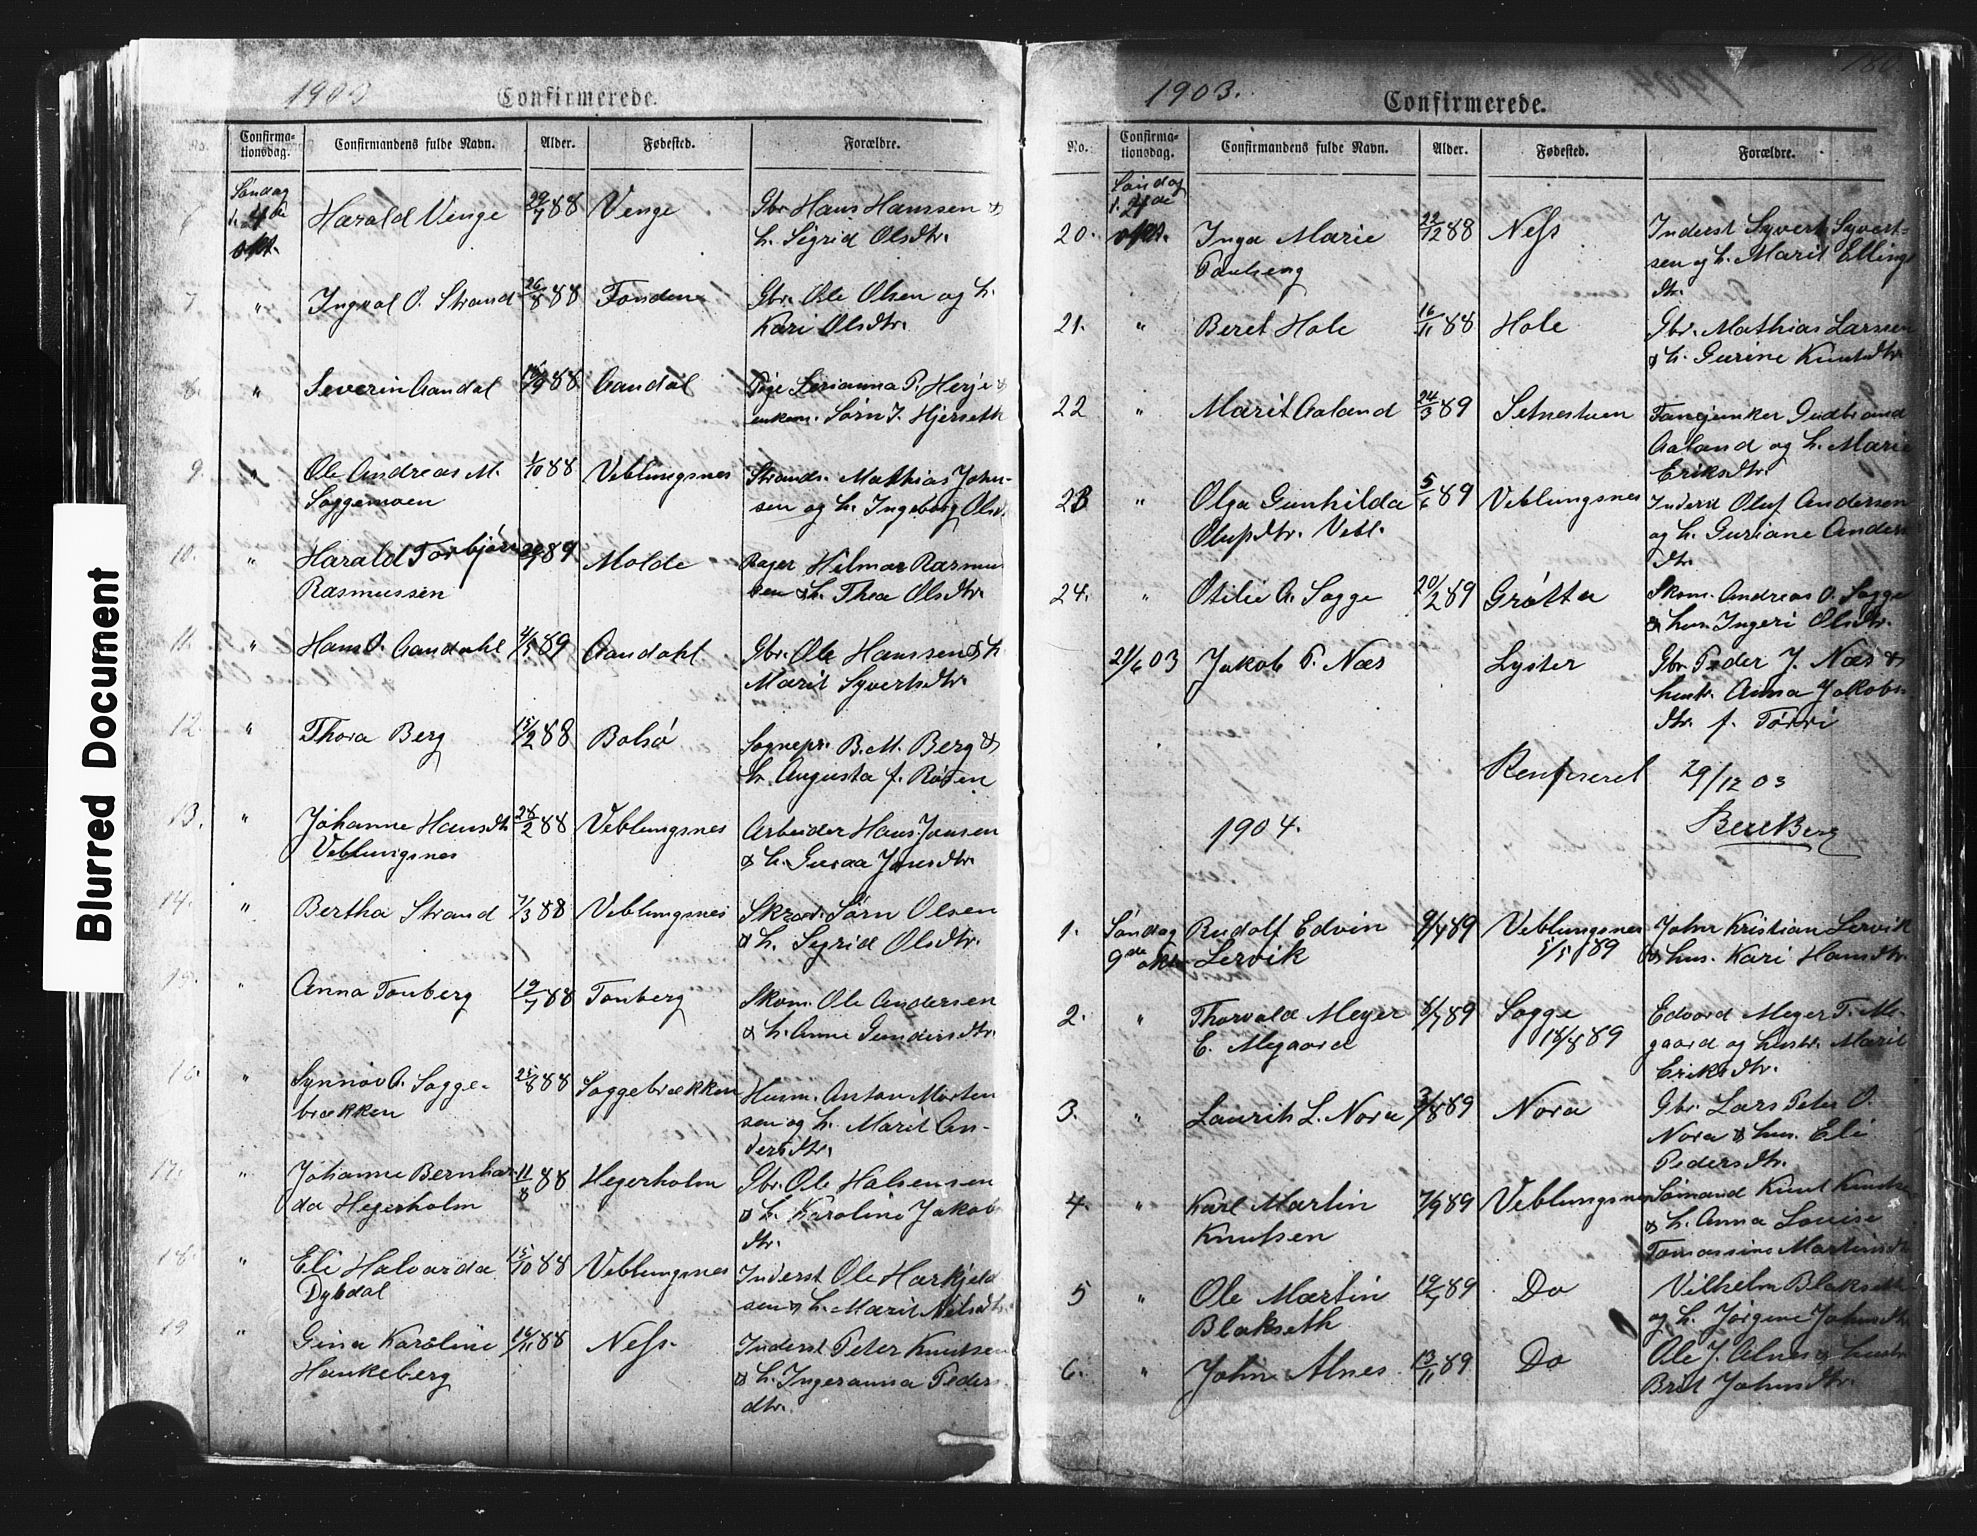 Blurred Document
1903
Confirmerede.
No.
Confirma-
tionsdag.
Confirmandens fulde Navn.
Alder.
Fødested.
Forældre.
6
Søndag
d. 4de
okt.
Harald Venge
29/7 88
Venge
Gbr. Hans Hanssen &
h. Sigrid Olsdtr.
7.
"
Ingval O. Strand
26/8 88
Gbr. Ole Olsen og h.
Kari Olsdtr.
8.
"
Severin Aandal
88
Aandal
Pige Serianna P. Herje &
enkem. Sørn J. Hjerseth
9.
"
Ole Andreas M.
Soggemoen
1/10 88
Veblungsnes
Strands. Mathias John-
sen og h. Ingeborg Olsd.
10.
"
Harald Torbjørn
Rasmussen
89
Molde
Bager Hilmar Rasmus
sen & h. Thea Olsdtr.
11.
"
Hans O. Aandahl
4/5 89
Aandahl
Gbr. Ole Hanssen & h.
Marit Syvertsdtr.
12.
"
Thora Berg
15/2 88
Bolsø
Sognepr. B. M. Berg &
h. Augusta f. Rosen
13.
"
Johanne Hansdtr.
Veblungsnes
28/2 88
Veblungsnes
Arbeider Hans Jonsen
& h. Guraa Jonsdtr.
14.
"
Bertha Strand
7/3 88
Veblungsnes
Skræd. Sørn Olsen
& h. Sigrid Olsdtr.
15.
"
Anna Tonberg
19/7 88
Tonberg
Skom. Ole Andersen
& h. Anne Gundersdtr.
16.
"
Synnøv A. Sogge-
brækken
25/8 88
Soggebrækken
Husm. Anton Morten
sen og h. Marit An-
dersdtr.
17.
"
Johanne Bernhar-
da Hegerholm
11/8 88
Hegerholm
Gbr. Ole Halsensen
& h. Karoline Jakob
dtr.
18.
"
Eli Halvarda
Dybdal
15/10 88
Veblungsnes
Inderst Ole Harkjeld
sen & h. Marit Nilsdtr.
19
"
Gina Karoline
Hankeberg
16/11 88
Ness.
Inderst Peter Knutsen
& h. Ingeranna Peders
dtr.
180.
1903.
Confirmerede.
No.
Confirma-
tionsdag.
Confirmandens fulde Navn.
Alder.
Fødested.
Forældre.
20.
Søndag
d. 4de
okt.
Inga Marie
Paulseng
22/12 88
Ness
Inderst Syvert Syvert-
sen og h. Marit Ellings
dtr.
21.
"
Beret Hole
16/11 88
Hole
Gbr. Mathias Larssen
& h. Gurine Knutsdtr.
22
"
Marit Aaland
24/3 89
Setnestuen
Fanejunker Gudbrand
Aaland og h. Marie
Eriksdtr.
23
"
Olga Gunhilda
Olufsdtr. Vebl.
5/6 89
Veblungsnes
Inderst Oluf Andersen
og h. Guriane Anders
dtr.
24.
"
Otilie A. Sogge
20/2 89
Grøtta
Skom. Andreas O. Sogge
& hus. Ingeri Olsdtr.
21/6 03
Jakob P. Næs
Lyster
Gbr. Peder J. Næs &
hustr. Anna Jakobs-
dtr. f. Tørri
Konfereret 29/12 03
B. M. Berg
1904.
1.
Søndag
9de okt.
Rudolf Edvin
Lervik
9/4 89
Veblungsnes
5/5 89
John Kristian Lervik
& hus. Kari Hansdtr.
2.
"
Thorvald Meyer
E. Megaard
8/7 89
Sogge
18/8 89
Edvard Meyer T. Me
gaard og hustr. Marit
Eriksdtr.
3.
"
Laurits L. Nora
3/8 89
Nora
Gbr. Lars Peter O.
Nora & hus. Eli
Pedersdtr.
4.
"
Karl Martin
Knutsen
7/9 89
Veblungsnes
Sømand Knut Knutsen
& h. Anna Louise
Tomassine Martinsdtr.
5
"
Ole Martin
Blakseth
19/7 89
Do
Vilhelm Blakseth
og h. Jørgine Johnsdtr.
6.
"
John Alnes
13/11 89
Do
Ole J. Alnes & hustr.
Brit Johnsdtr.